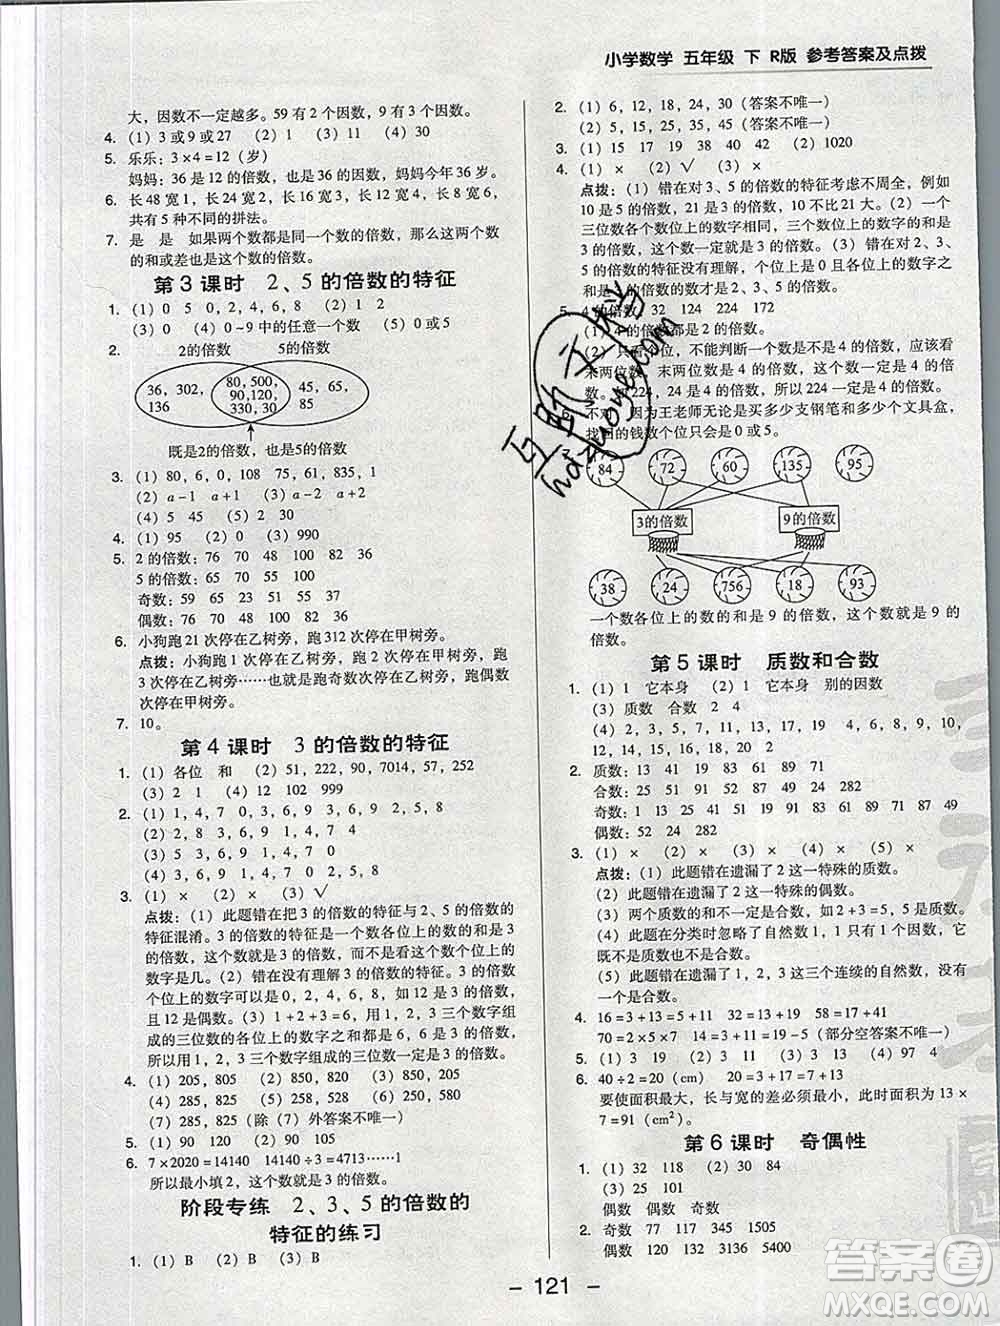 小学数学 五年级 下 R版 参考答案及点拨
大，因数不一定越多。59 有 2 个因数，9 有 3 个因数。
4. (1) 3 或 9 或 27 (2) 1 (3) 11 (4) 30
5. 乐乐：3×4=12（岁）
妈妈：36 是 12 的倍数，也是 36 的因数，妈妈今年 36 岁。
6. 长 48 宽 1，长 24 宽 2，长 16 宽 3，长 12 宽 4，长 8 宽 6，
共有 5 种不同的拼法。
7. 是 是 如果两个数都是同一个数的倍数，那么这两个数
的和或差也是这个数的倍数。
第 3 课时 2、5 的倍数的特征
1. (1) 0 5 0，2，4，6，8 (2) 1 2
(3) 0 (4) 0~9 中的任意一个数 (5) 0 或 5
2. 2的倍数 5的倍数
36，302，
136
80，500，
90，120，
330，30
45，65，
85
既是2的倍数，也是5的倍数
3. (1) 80，6，0，108 75，61，835，1
(2) a-1 a+1 (3) a-2 a+2
(4) 5 45 (5) 2 10
4. (1) 95 (2) 0 (3) 990
5. 2 的倍数：76 70 48 100 66 52
5 的倍数：75 70 35 100
奇数：75 35 59 23 67
偶数：76 70 48 100 66 52
6. 小狗跑 21 次停在乙树旁，跑 312 次停在甲树旁。
点拨：小狗跑 1 次停在乙树旁，跑 2 次停在甲树旁，跑
3 次停在乙树旁……也就是跑奇数次停在乙树旁，跑偶数
次停在甲树旁。
7. 10。
第 4 课时 3 的倍数的特征
1. (1) 各位 和 (2) 51，222，90，7014，57，252
(3) 2 1 (4) 12 102 999
2. (1) 1，4，7 0，3，6，9 2 3，6，9 2
(2) 2，5，8 0，3，6，9 1，4，7 4
(3) 0，3，6，9 2，5，8 1，4，7 0
(4) 3，6，9 2，5，8 1，4，7 0
3. (1) × (2) × (3) √
点拨：(1) 此题错在把 3 的倍数的特征与 2、5 的倍数的
特征混淆。3 的倍数的特征是一个数各位上的数的和是 3 的
倍数，这个数就是 3 的倍数，而不是看这个数个位上的
数字是几。(2) 错在没有理解 3 的倍数的特征。3 的倍数
个位上的数可以是 0，2，4，6，8，如 12 是 3 的倍数，
且 12 是偶数。(3) 1+2+3=6，用 1，2，3 三个数字组成
的三位数的各位上的数字之和都是 6，6 是 3 的倍数，
所以用 1，2，3 三个数字组成的三位数一定是 3 的倍数。
4. (1) 205，805 (2) 820，850 (3) 285，825
(4) 258，528 (5) 250，280 (6) 258，528
(7) 285，825（除（7）外答案不唯一）
5. (1) 90 120 (2) 90 105
6. 7×2020=14140 14140÷3=4713……1
所以最小填 2，这个数就是 3 的倍数。
阶段专练 2、3、5 的倍数的
特征的练习
1. (1) B (2) B (3) B
2. (1) 6，12，18，24，30（答案不唯一）
(2) 5，25，30，35，45（答案不唯一）
3. (1) 15 17 19 38 40 42 (2) 1020
4. (1) × (2) √ (3) ×
点拨：(1) 错在对 3、5 的倍数的特征考虑不周全，例如
10 是 5 的倍数，21 是 3 的倍数，10 不比 21 大。(2) 一个
三位数各个数位上的数字相同，三个数位上的数字的和是
3 的倍数，这个数一定是 3 的倍数。(3) 错在对 2、3、
5 的倍数的特征没有理解，个位上是 0 且各位上的数字之
和是 3 的倍数的数才是 2、3、5 的倍数。
5. 4 的倍数：32 124 224 172
(1) 4 的倍数都是 2 的倍数。
(2) 只看个位，不能判断一个数是不是 4 的倍数，应该看
末两位数，末两位数是 4 的倍数，这个数就是 4 的
倍数。如 224，24 是 4 的倍数，所以 224 一定是 4 的倍数。
不对，因为王老师无论是买多少支钢笔和多少个文具盒，
找回的钱数个位只会是 0 或 5。
84 72 60 135 95
3的倍数 9的倍数
38 24 756 18 93
一个数各位上的数的和是 9 的倍数，这个数就是 9 的
倍数。
第 5 课时 质数和合数
1. (1) 1 它本身 (2) 1 它本身 别的因数
(3) 质数 合数 2 4
(4) 2，3，5，7，11，13，17，19 4，6，8，9，10，
12，14，15，16，18，20 2
2. 质数：13 41 19 31 83 89 47
合数：25 51 52 24 91 87 282 49
奇数：1 13 25 41 51 19 91 31 83 89 87 47 49
偶数：52 24 282
3. (1) × (2) × (3) × (4) × (5) ×
点拨：(1) 此题错在遗漏了 2 这一特殊的质数。
(2) 此题错在遗漏了 2 这一特殊的偶数。
(3) 两个质数的和不一定是合数，如 2+3=5，5 是质数。
(4) 此题错在分类时忽略了自然数 1，只有 1 个因数，它
既不是质数也不是合数。
(5) 此题错在遗漏了 1，2，3 这三个连续的自然数，没有
一个是合数。
4. 16=3+13=5+11 32=13+19 58=17+41
70=2×5×7 14=3+11=19-5（部分空答案不唯一）
5. (1) 3 19 (2) 13 2 (3) 3 31 (4) 97 4
6. 40÷2=20（cm） 20=3+17=7+13
要使面积最大，长与宽的差必须最小，此时面积为 13×
7=91（cm²）。
第 6 课时 奇偶性
1. (1) 32 118 (2) 30 84
(3) 25 101
偶数 偶数 奇数
2. 奇数 77 117 345 1505
偶数 120 132 3136 5400
- 121 -
互助文档
hdzuoye.com
答案圈
MXQE.COM